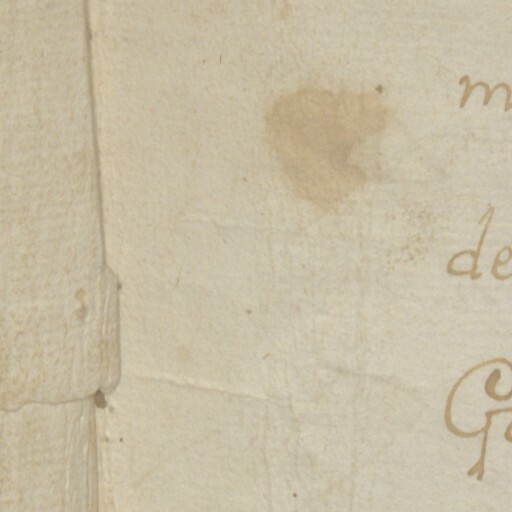 m
de
Ga